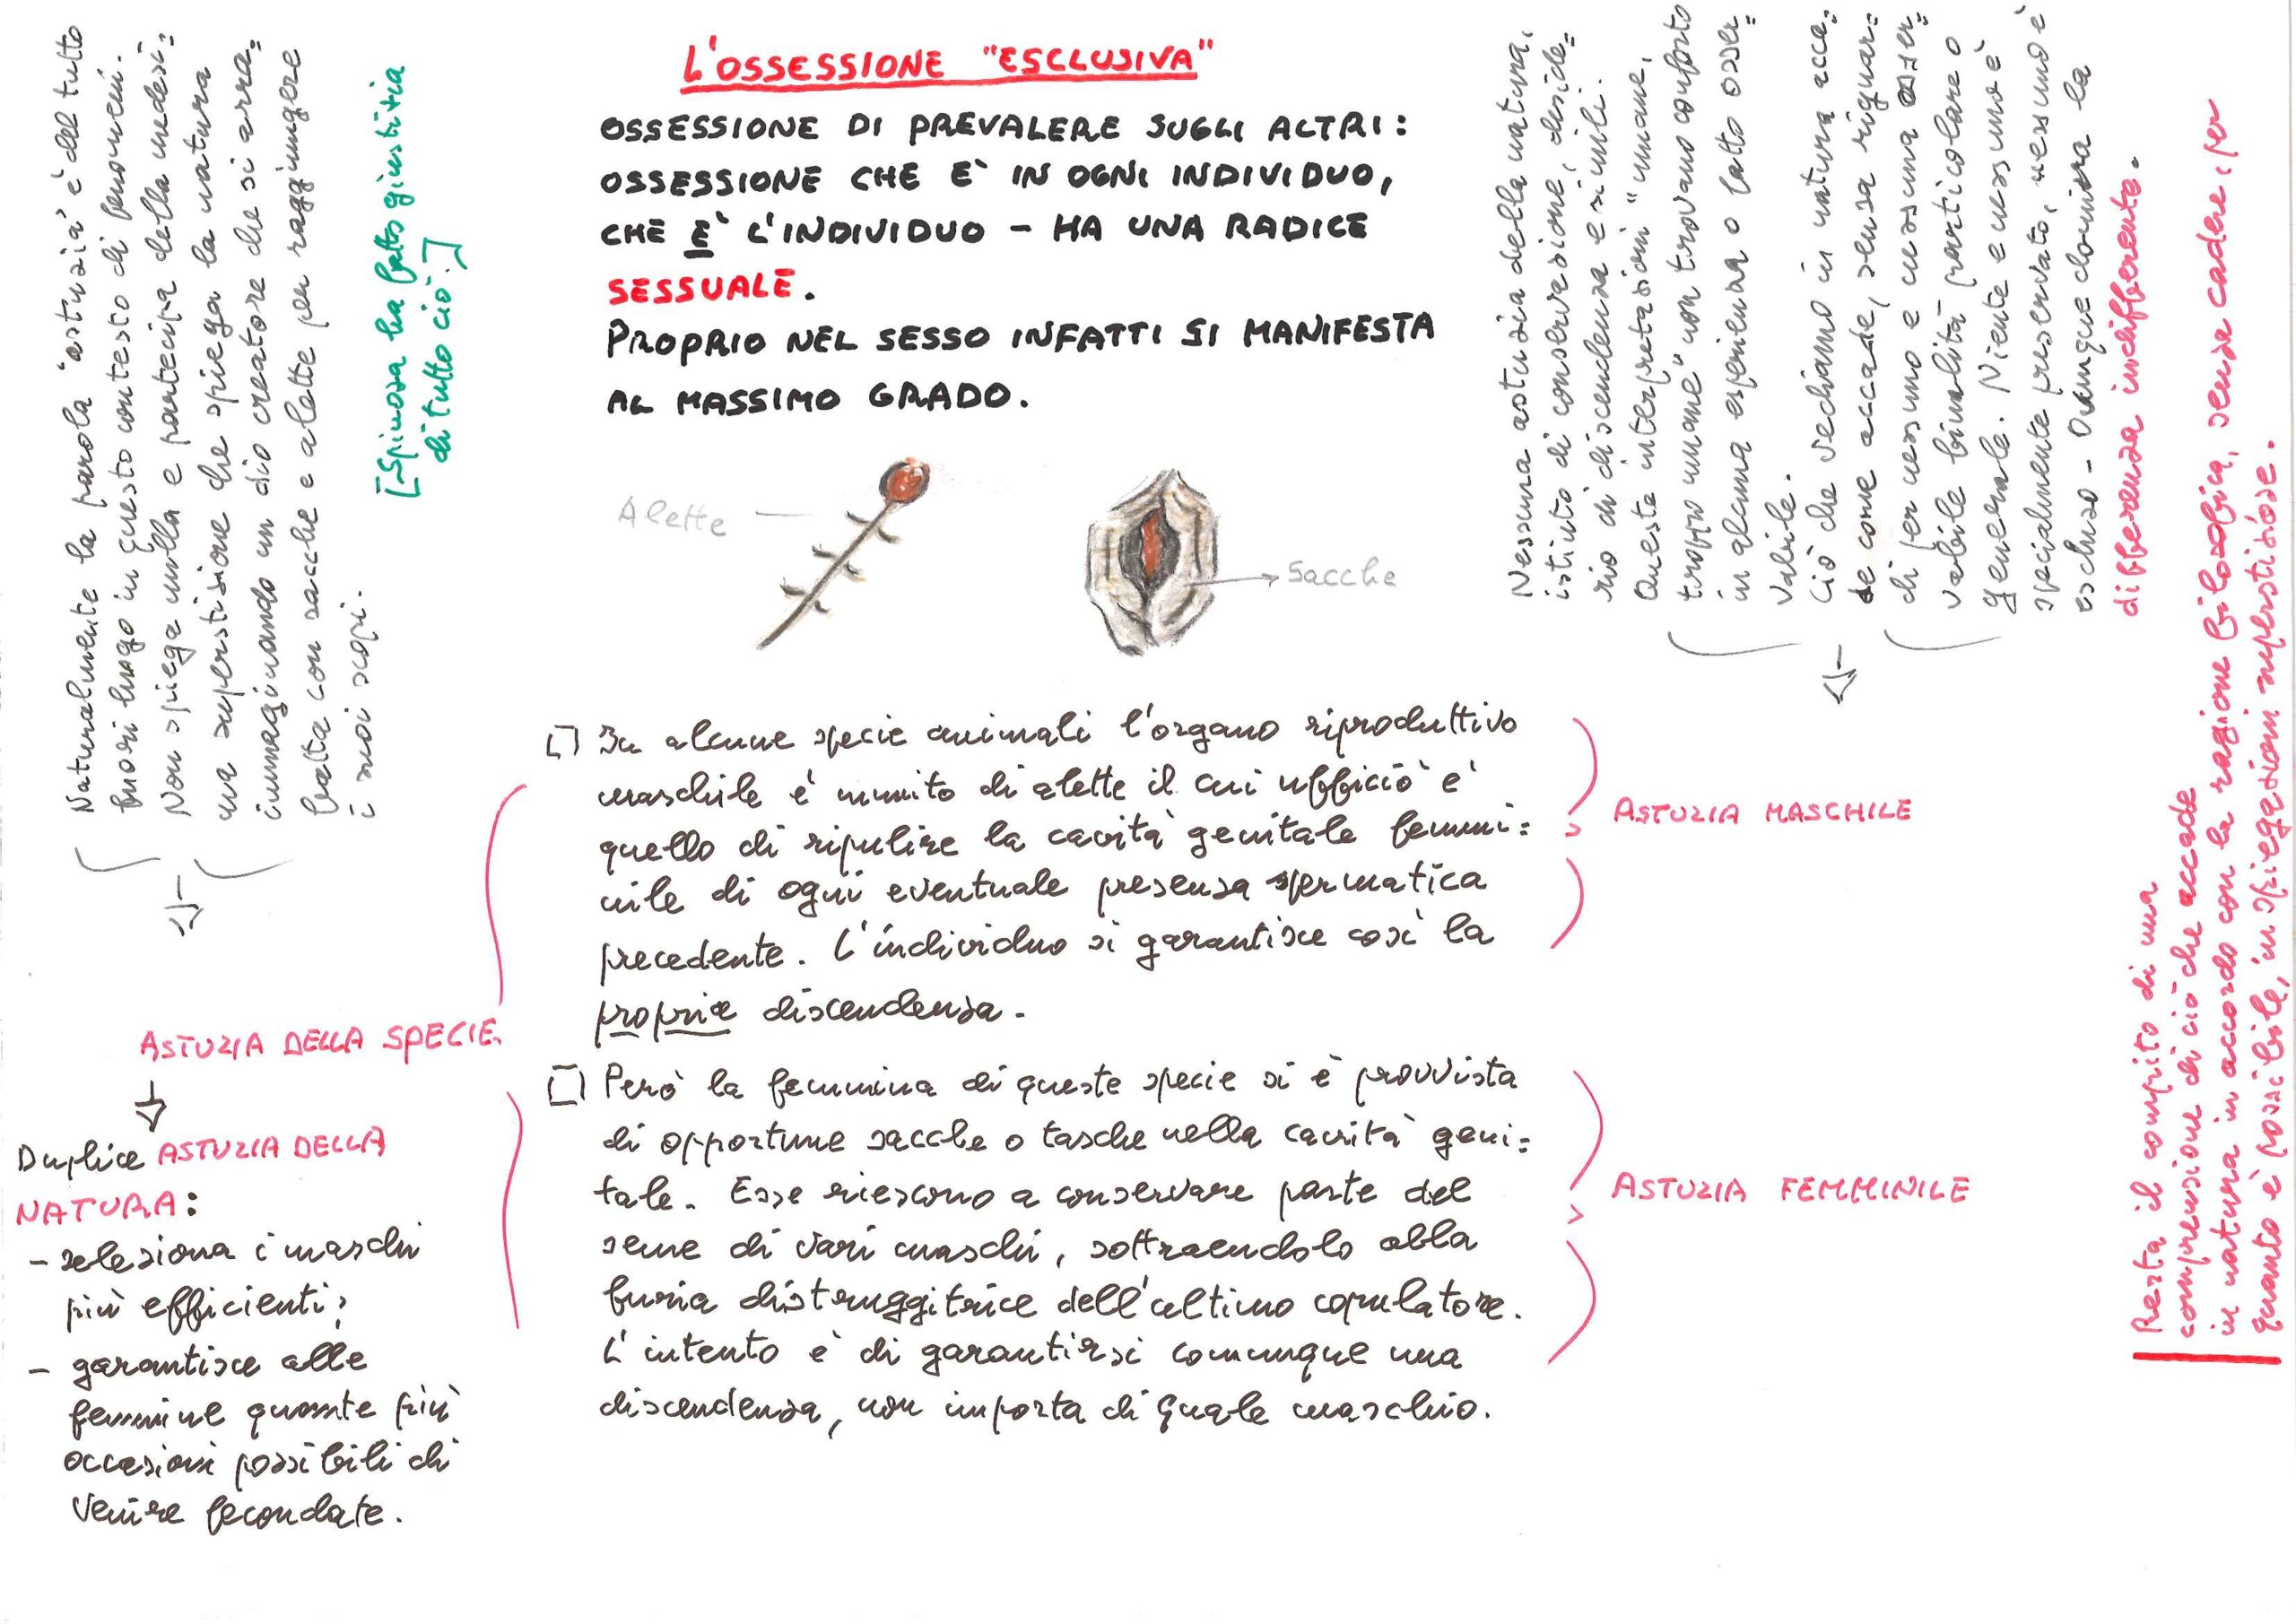 L'OSSESSIONE "ESCLUSIVA"
OSSESSIONE DI PREVALERE SUGLI ALTRI:
OSSESSIONE CHE E' IN OGNI INDIVIDUO,
CHE E' L'INDIVIDUO - HA UNA RADICE
SESSUALE.
PROPRIO NEL SESSO INFATTI SI MANIFESTA
AL MASSIMO GRADO.
Alette
Sacche
In alcune specie animali l'organo riproduttivo
maschile è munito di alette il cui ufficio è
quello di ripulire la cavità genitale femmi=
nile di ogni eventuale presenza spermatica
precedente. L'individuo si garantisce così la
propria discendenza.
Però la femmina di queste specie si è provvista
di opportune sacche o tasche nella cavità geni=
tale. Esse riescono a conservare parte del
seme di vari maschi, sottraendolo alla
furia distruggitrice dell'ultimo copulatore.
L'intento è di garantirsi comunque una
discendenza, non importa di quale maschio.
ASTUZIA MASCHILE
ASTUZIA FEMMINILE
ASTUZIA DELLA SPECIE
Duplice ASTUZIA DELLA
NATURA:
- seleziona i maschi
più efficienti;
- garantisce alle
femmine quante più
occasioni possibili di
venire fecondate.
Naturalmente la parola "astuzia" è del tutto
fuori luogo in questo contesto di fenomeni.
Non spiega nulla e partecipa della medesi=
ma superstizione che spiega la natura
immaginando un dio creatore che si arra=
batta con sacche e alette per raggiungere
i suoi scopi.
[Spinoza ha fatto giustizia
di tutto ciò.]
Nessuna astuzia della natura,
istinto di conservazione, deside=
rio di discendenza e simili.
Queste interpretazioni "umane,
troppo umane" non trovano conforto
in alcuna esperienza o fatto osser=
vabile.
Ciò che vediamo in natura acca=
de come accade, senza riguar=
di per nessuno e nessuna osser=
vabile finalità particolare o
generale. Niente e nessuno è
specialmente preservato, nessuno è
escluso - Ovunque domina la
differenza indifferente.
Resta il compito di una
comprensione di ciò che accade
in natura in accordo con la ragione filosofica, senza cadere, per
quanto è possibile, in spiegazioni superstiziose.